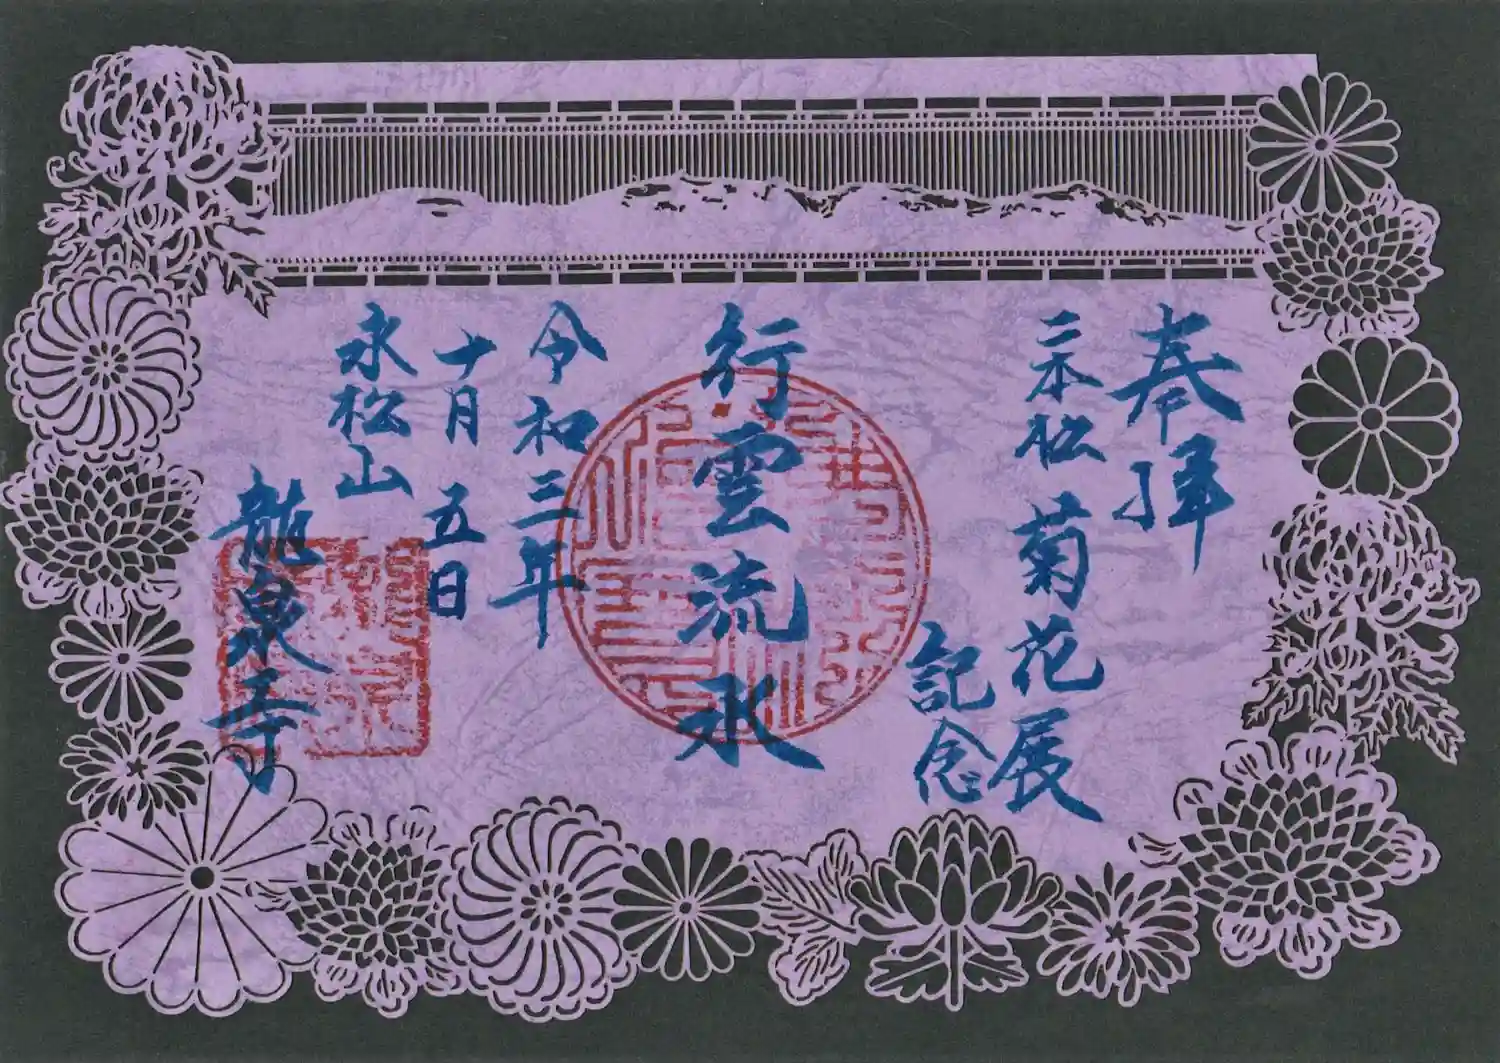 奉拝
二本松菊花展
記念
行雲流水
令和三年
十月五日
永松山
龍泉寺